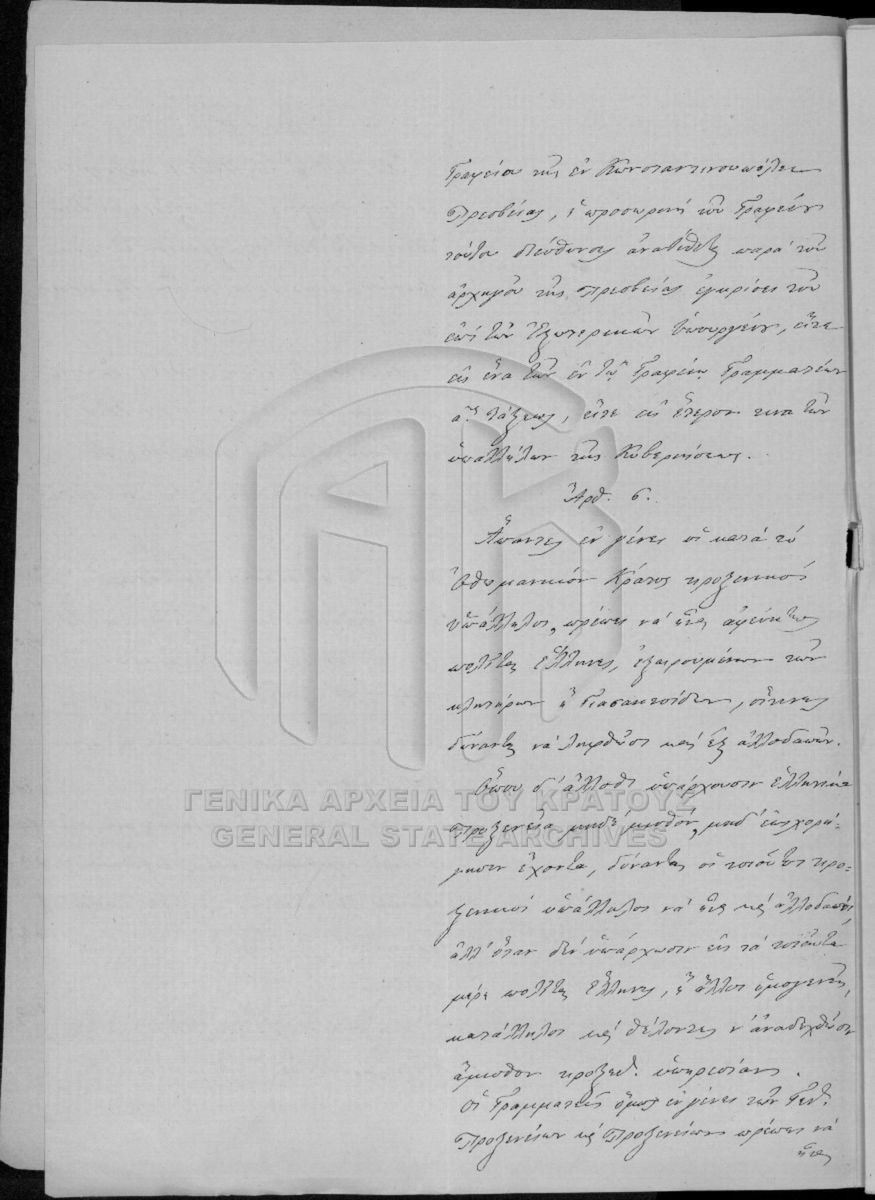 Γραφείου τῆς ἐν Κωνσταντινουπόλει
Πρεσβείας, ἡ προσωρινὴ τοῦ Γραφείου
τούτου διεύθυνσις ἀνατίθεται παρὰ τοῦ
ἀρχηγοῦ τῆς Πρεσβείας ἐγκρίσει τοῦ
ἐπὶ τῶν Ἐξωτερικῶν Ὑπουργείου, εἴτε
εἰς ἕνα τῶν ἐν τῷ Γραφείῳ Γραμματέων
αʹ. τάξεως, εἴτε εἰς ἕτερον τινα τῶν
ὑπαλλήλων τῆς Κυβερνήσεως.
Ἄρθ. 6.
Ἅπαντες ἐν γένει οἱ κατὰ τὸ
Ὀθωμανικὸν Κράτος προξενικοὶ
ὑπάλληλοι, πρέπει νὰ ἦναι ἀφεύκτως
πολῖται Ἕλληνες, ἐξαιρουμένων τῶν
κλητήρων ἢ διασακτσίδων, οἵτινες
δύνανται νὰ ληφθῶσι καὶ ἐξ ἀλλοδαπῶν.
Ὅπου δ' ἄλλοθι ὑπάρχουσιν ἑλληνικὰ
Προξενεῖα μηδὲ μισθὸν, μηδ' ἐπιχορή-
γησιν ἔχοντα, δύνανται οἱ τοιοῦτοι προ-
ξενικοὶ ὑπάλληλοι νὰ ἦναι καὶ ἀλλοδαποὶ,
ἀλλ' ὅταν δὲν ὑπάρχωσιν εἰς τὰ τοιαῦτα
μέρη πολῖται Ἕλληνες, ἢ ἄλλοι ὁμογενεῖς,
κατάλληλοι καὶ θέλοντες ν' ἀναδεχθῶσιν
ἄμισθον προξεν. ὑπηρεσίαν.
Οἱ Γραμματεῖς ὅμως ἐν γένει τῶν Γεν.
Προξενείων καὶ Προξενείων πρέπει νὰ
ἦναι
ΓΕΝΙΚΑ ΑΡΧΕΙΑ ΤΟΥ ΚΡΑΤΟΥΣ
GENERAL STATE ARCHIVES